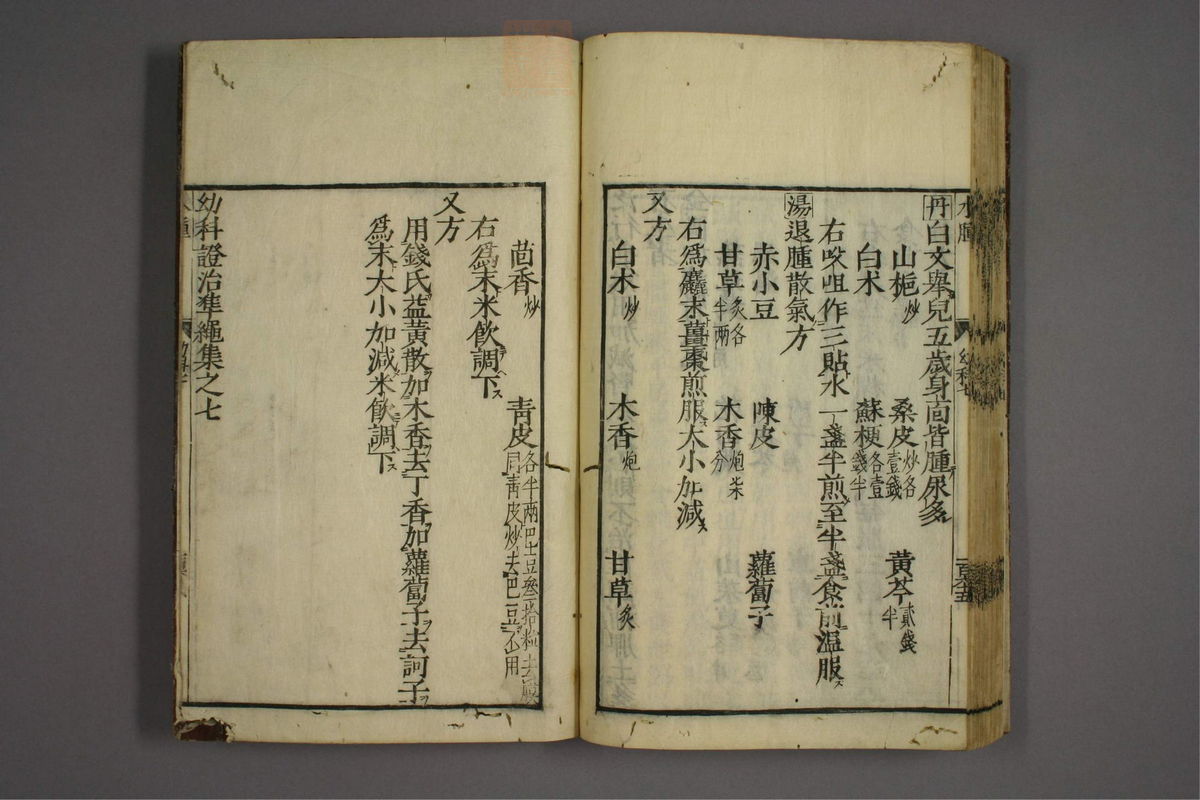 水腫
幼科七
丹白文舉兒五歲身面皆腫尿多
山梔炒 桑皮炒各壹錢 黃芩貳錢半
白朮 蘇梗各壹錢半
右㕮咀作三貼水一盞半煎至半盞食前溫服ス
湯退腫散氣方
赤小豆 陳皮 蘿蔔子
甘草炙各半兩 木香炮柒分
右爲麤末薑棗煎服大小加減ス
又方
白朮炒 木香炮 甘草炙
茴香炒 青皮各半兩巴土豆叄拾粒去殼同青皮炒去巴豆不用
右爲末米飲調下ス
又方
用錢氏益黃散加木香去丁香加蘿蔔子去訶子
爲末大小加減米飲調下ス
幼科證治準繩集之七